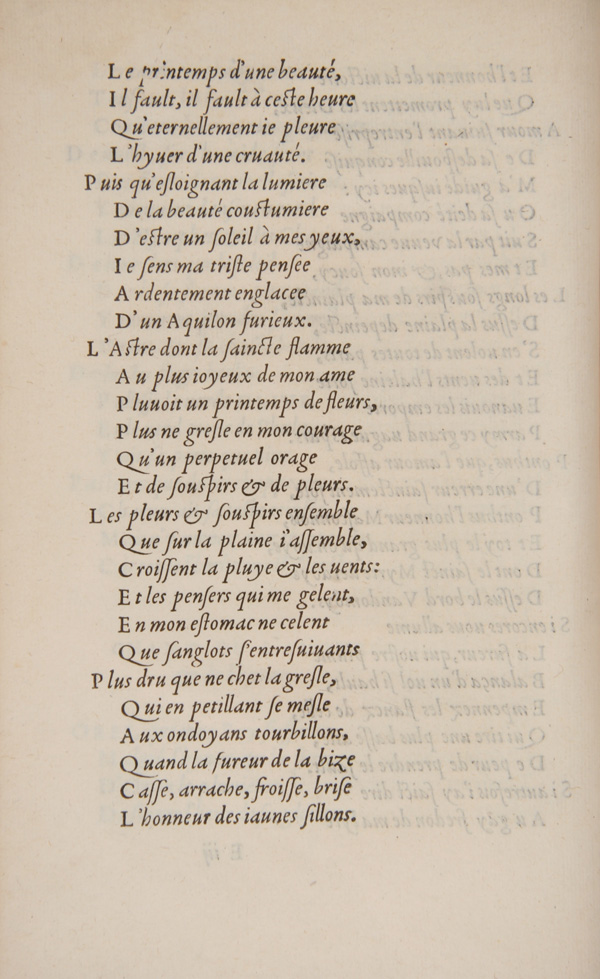 Le printemps d'une beauté,
Il fault, il fault à ceste heure
Qu'eternellement ie pleure
L'hyuer d'une cruauté.
Puis qu'esloignant la lumiere
De la beauté coustumiere
D'estre un soleil à mes yeux,
Ie sens ma triste pensée
Ardentement englacee
D'un Aquilon furieux.
L'Astre dont la saincte flamme
Au plus ioyeux de mon ame
Pluuoit un printemps de fleurs,
Plus ne gresle en mon courage
Qu'un perpetuel orage
Et de souspirs & de pleurs.
Les pleurs & souspirs ensemble
Que sur la plaine i'assemble,
Croissent la pluye & les uents:
Et les pensers qui me gelent,
En mon estomac ne celent
Que sanglots s'entresuiuants
Plus dru que ne chet la gresle,
Qui en petillant se mesle
Aux ondoyans tourbillons,
Quand la fureur de la bize
Casse, arrache, froisse, brise
L'honneur des iaunes sillons.